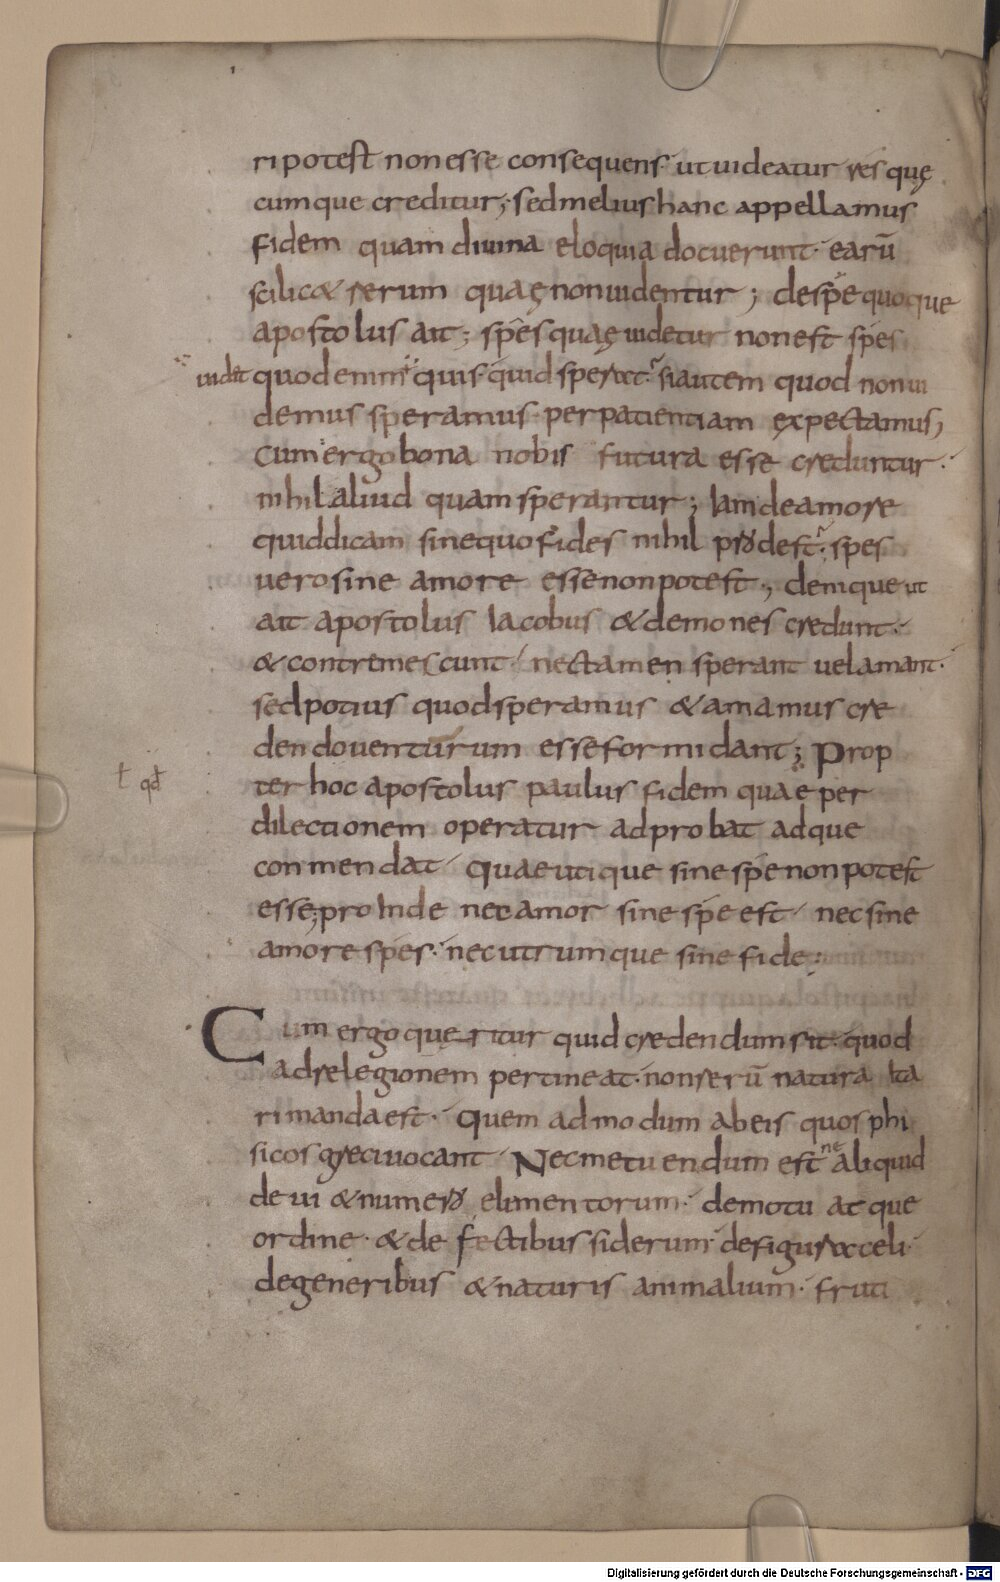 ri potest non esse consequens· ut uideatur res quę
cumque creditur; sed melius hanc appellamus
fidem quam diuina eloquia docuerunt· earū
scilic& rerum quaę non uidentur; de spe quoque
apostolus ait; spēs quaę uidetur non est spes
uidit quod enim quis quid sperat· si autem quod non ui
demus speramus per patientiam expectamus;
Cum ergo bona nobis futura esse creduntur·
nihil aliud quam sperantur; Iam de amore
quid dicam sine quo fides nihil prodest· spes
uero sine amore esse non potest; denique ut
ait apostolus Iacobus & demones credunt·
& contremescunt· nec tamen sperant uel amant·
sed potius quod speramus & amamus cre
dendo uenturum esse formidant; Prop
ł qđ ter hoc apostolus paulus fidem quae per
dilectionem operatur adprobat adque
conmendat· Quae utique sine spe non potest
esse; proinde nec amor sine spe est· nec sine
amore spes· nec utrumque sine fide;
Cum ergo queritur quid credendum sit· quod
ad relegionem pertineat· non rerū natura ita
rimanda est· Quem ad modum ab eis quos phi
sicos greci uocant· Nec metuendum est ne aliquid
de ui & numero elimentorum· de motu atque
ordine· & defectibus siderum· de figura celi·
de generibus & naturis animalium· fruti
Digitalisierung gefördert durch die Deutsche Forschungsgemeinschaft - DFG